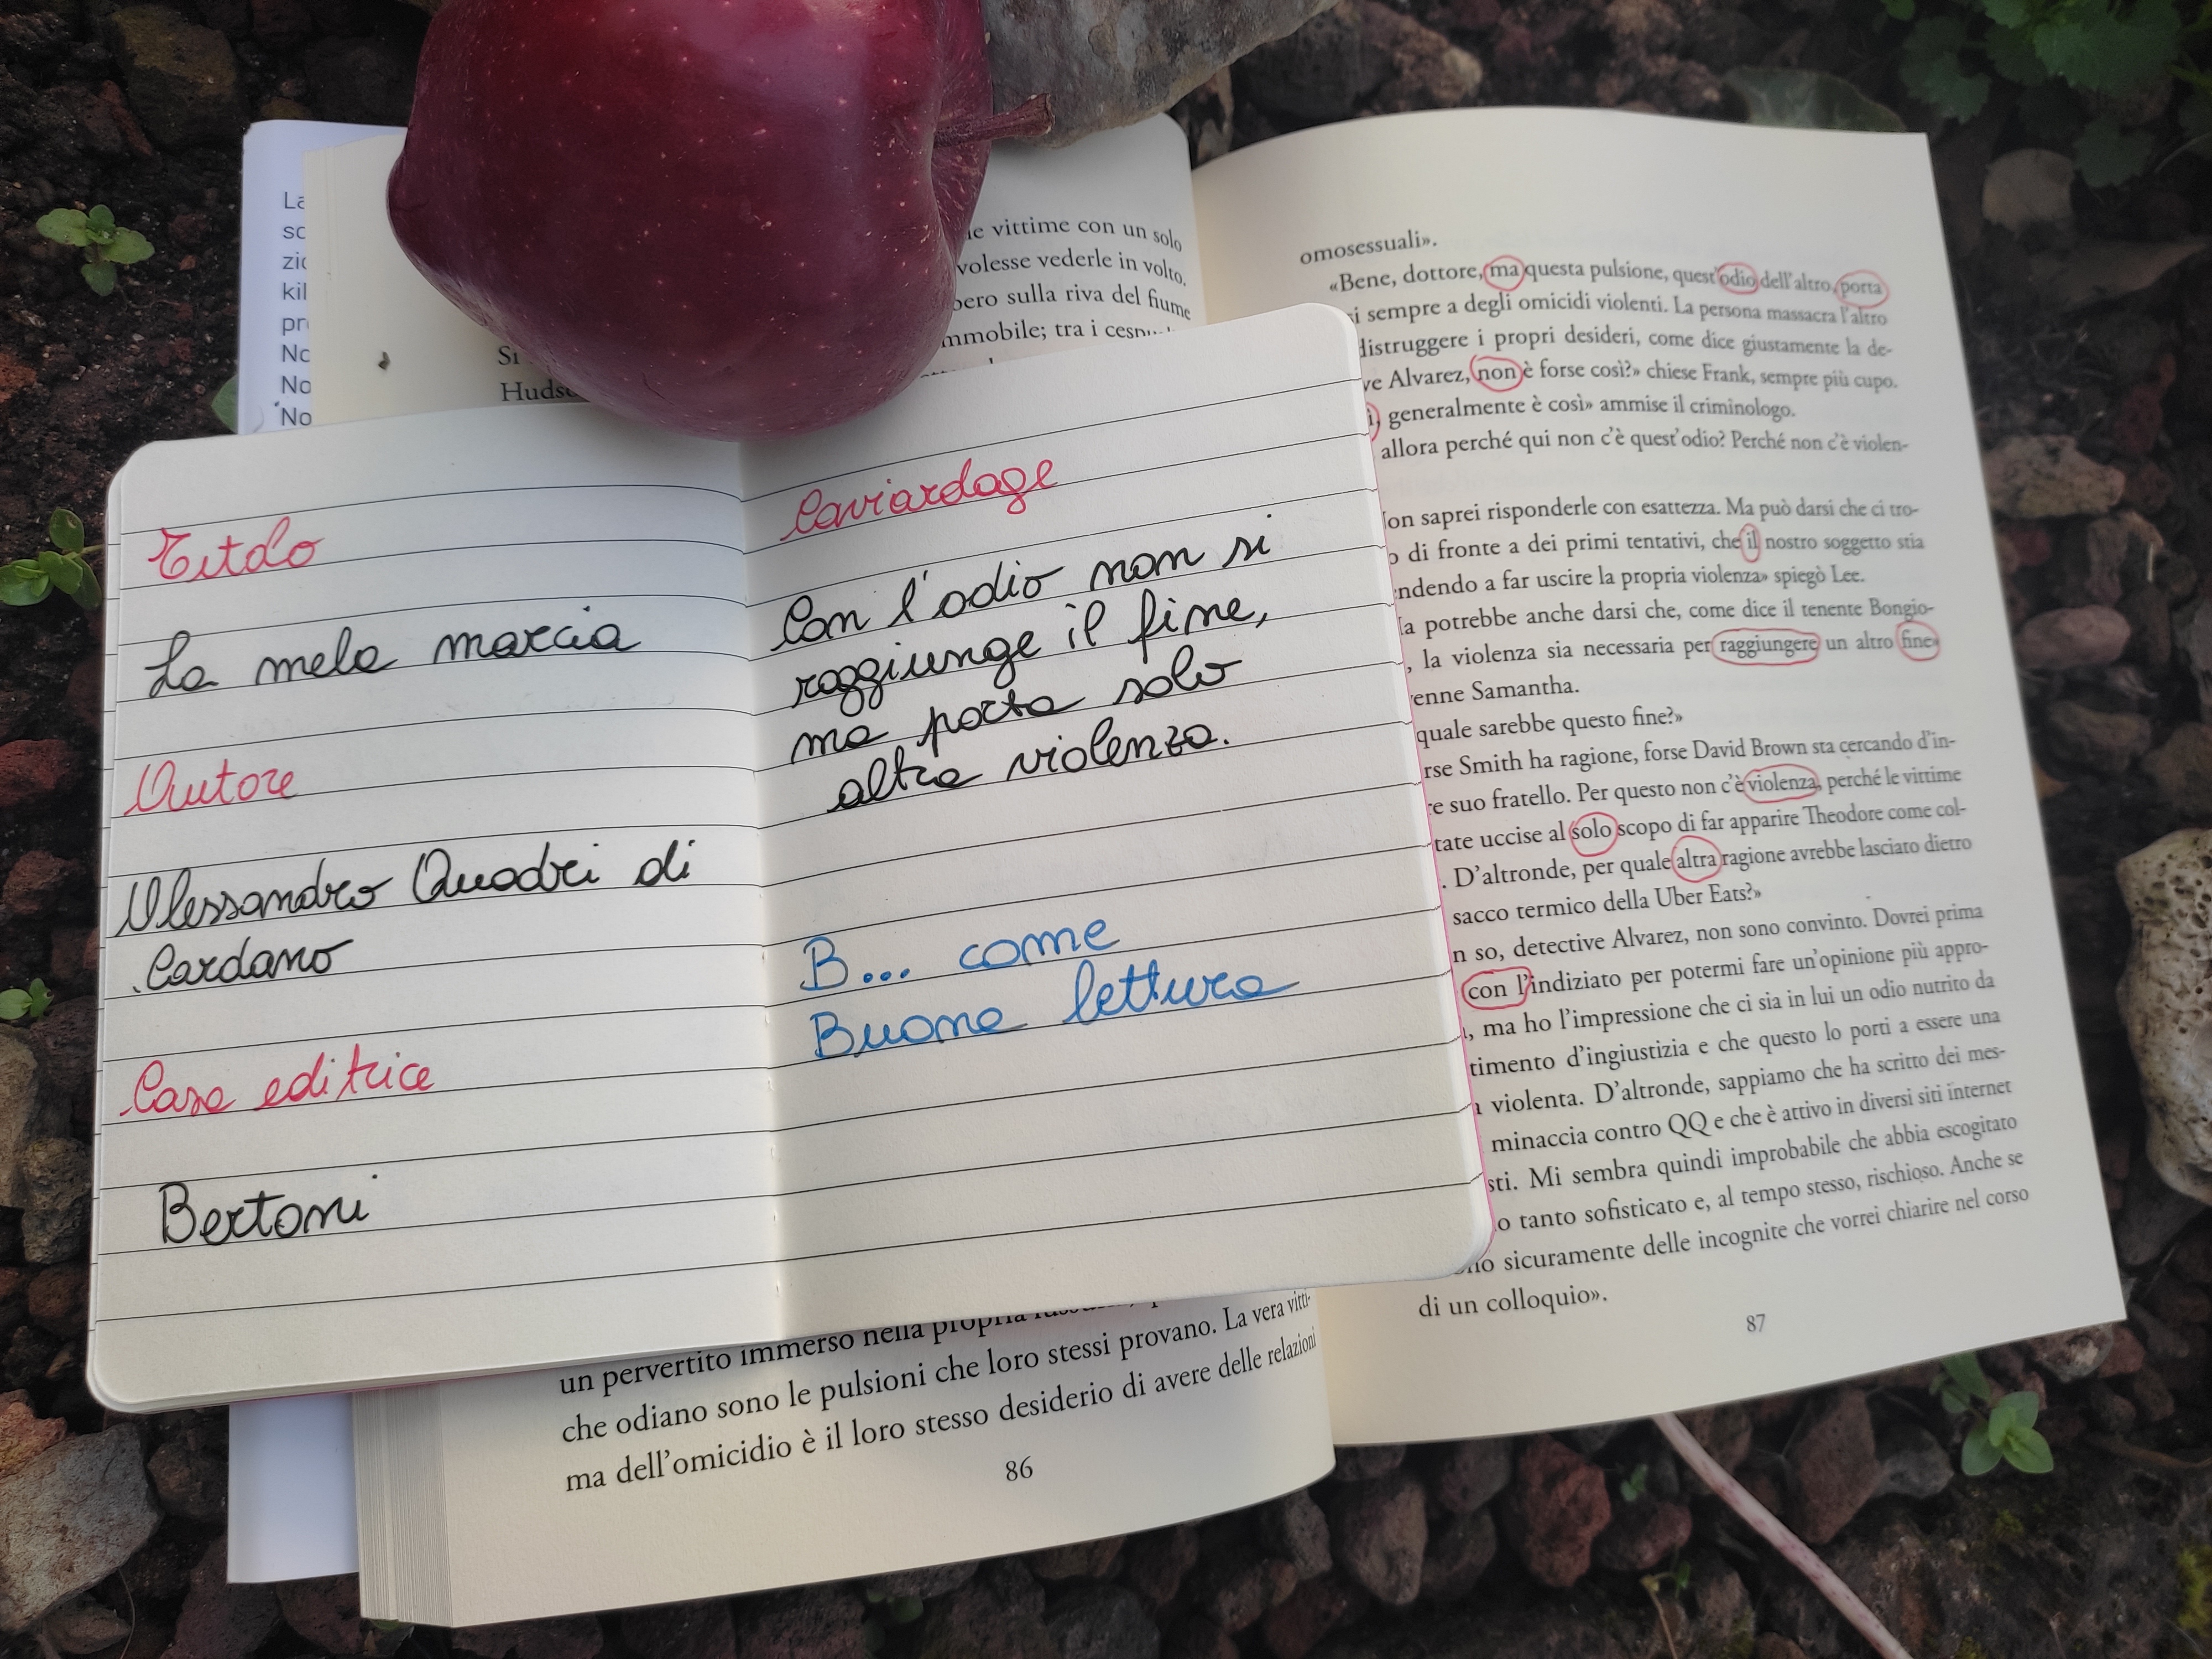 La
so
kil
No
No
No
Si
Hudso
le vittime con un solo
volesse vederle in volto.
sulla riva del fiume
tra i
Titolo
La mela marcia
Autore
Alessandro Quadri di
Cardano
Casa editrice
Bertoni
Caviardage
Con l'odio non si
raggiunge il fine,
ma porta solo
altra violenza.
B... come
Buona lettura
immerso nella propria
un pervertito immerso nella propria
che odiano sono le pulsioni che loro stessi provano. La vera vitti-
ma dell'omicidio è il loro stesso desiderio di avere delle relazioni
86
omosessuali».
«Bene, dottore, ma questa pulsione, quest'odio dell'altro, porta
si sempre a degli omicidi violenti. La persona massacra l'altro
distruggere i propri desideri, come dice giustamente la de-
ve Alvarez, non è forse così?» chiese Frank, sempre più cupo.
ì, generalmente è così» ammise il criminologo.
allora perché qui non c'è quest'odio? Perché non c'è violen-
on saprei risponderle con esattezza. Ma può darsi che ci tro-
o di fronte a dei primi tentativi, che il nostro soggetto stia
ndendo a far uscire la propria violenza» spiegò Lee.
a potrebbe anche darsi che, come dice il tenente Bongio-
, la violenza sia necessaria per raggiungere un altro fine»
enne Samantha.
quale sarebbe questo fine?»
rse Smith ha ragione, forse David Brown sta cercando d'in-
e suo fratello. Per questo non c'è violenza, perché le vittime
tate uccise al solo scopo di far apparire Theodore come col-
. D'altronde, per quale altra ragione avrebbe lasciato dietro
sacco termico della Uber Eats?»
n so, detective Alvarez, non sono convinto. Dovrei prima
con l'indiziato per potermi fare un'opinione più appro-
, ma ho l'impressione che ci sia in lui un odio nutrito da
timento d'ingiustizia e che questo lo porti a essere una
violenta. D'altronde, sappiamo che ha scritto dei mes-
minaccia contro QQ e che è attivo in diversi siti internet
sti. Mi sembra quindi improbabile che abbia escogitato
o tanto sofisticato e, al tempo stesso, rischioso. Anche se
no sicuramente delle incognite che vorrei chiarire nel corso
di un colloquio».
87